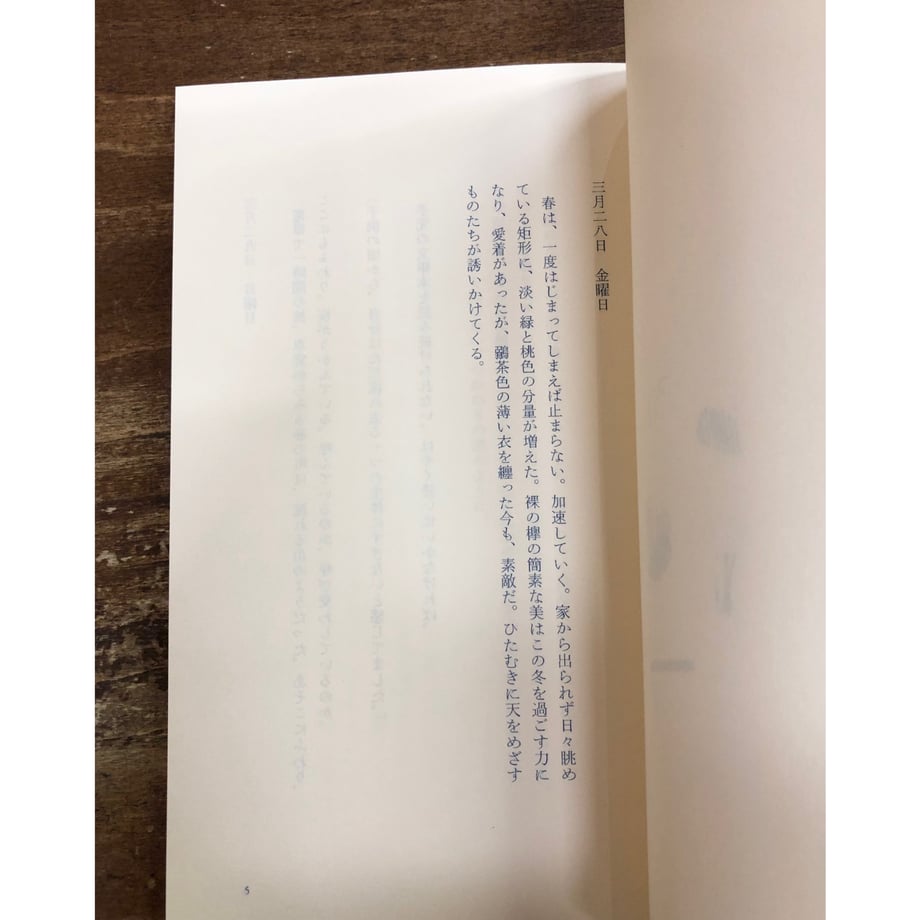 三月二八日　金曜日
春は、一度はじまってしまえば止まらない。加速していく。家から出られず日々眺め
ている矩形に、淡い緑と桃色の分量が増えた。裸の欅の簡素な美はこの冬を過ごす力に
なり、愛着があったが、鶸茶色の薄い衣を纏った今も、素敵だ。ひたむきに天をめざす
ものたちが誘いかけてくる。
5